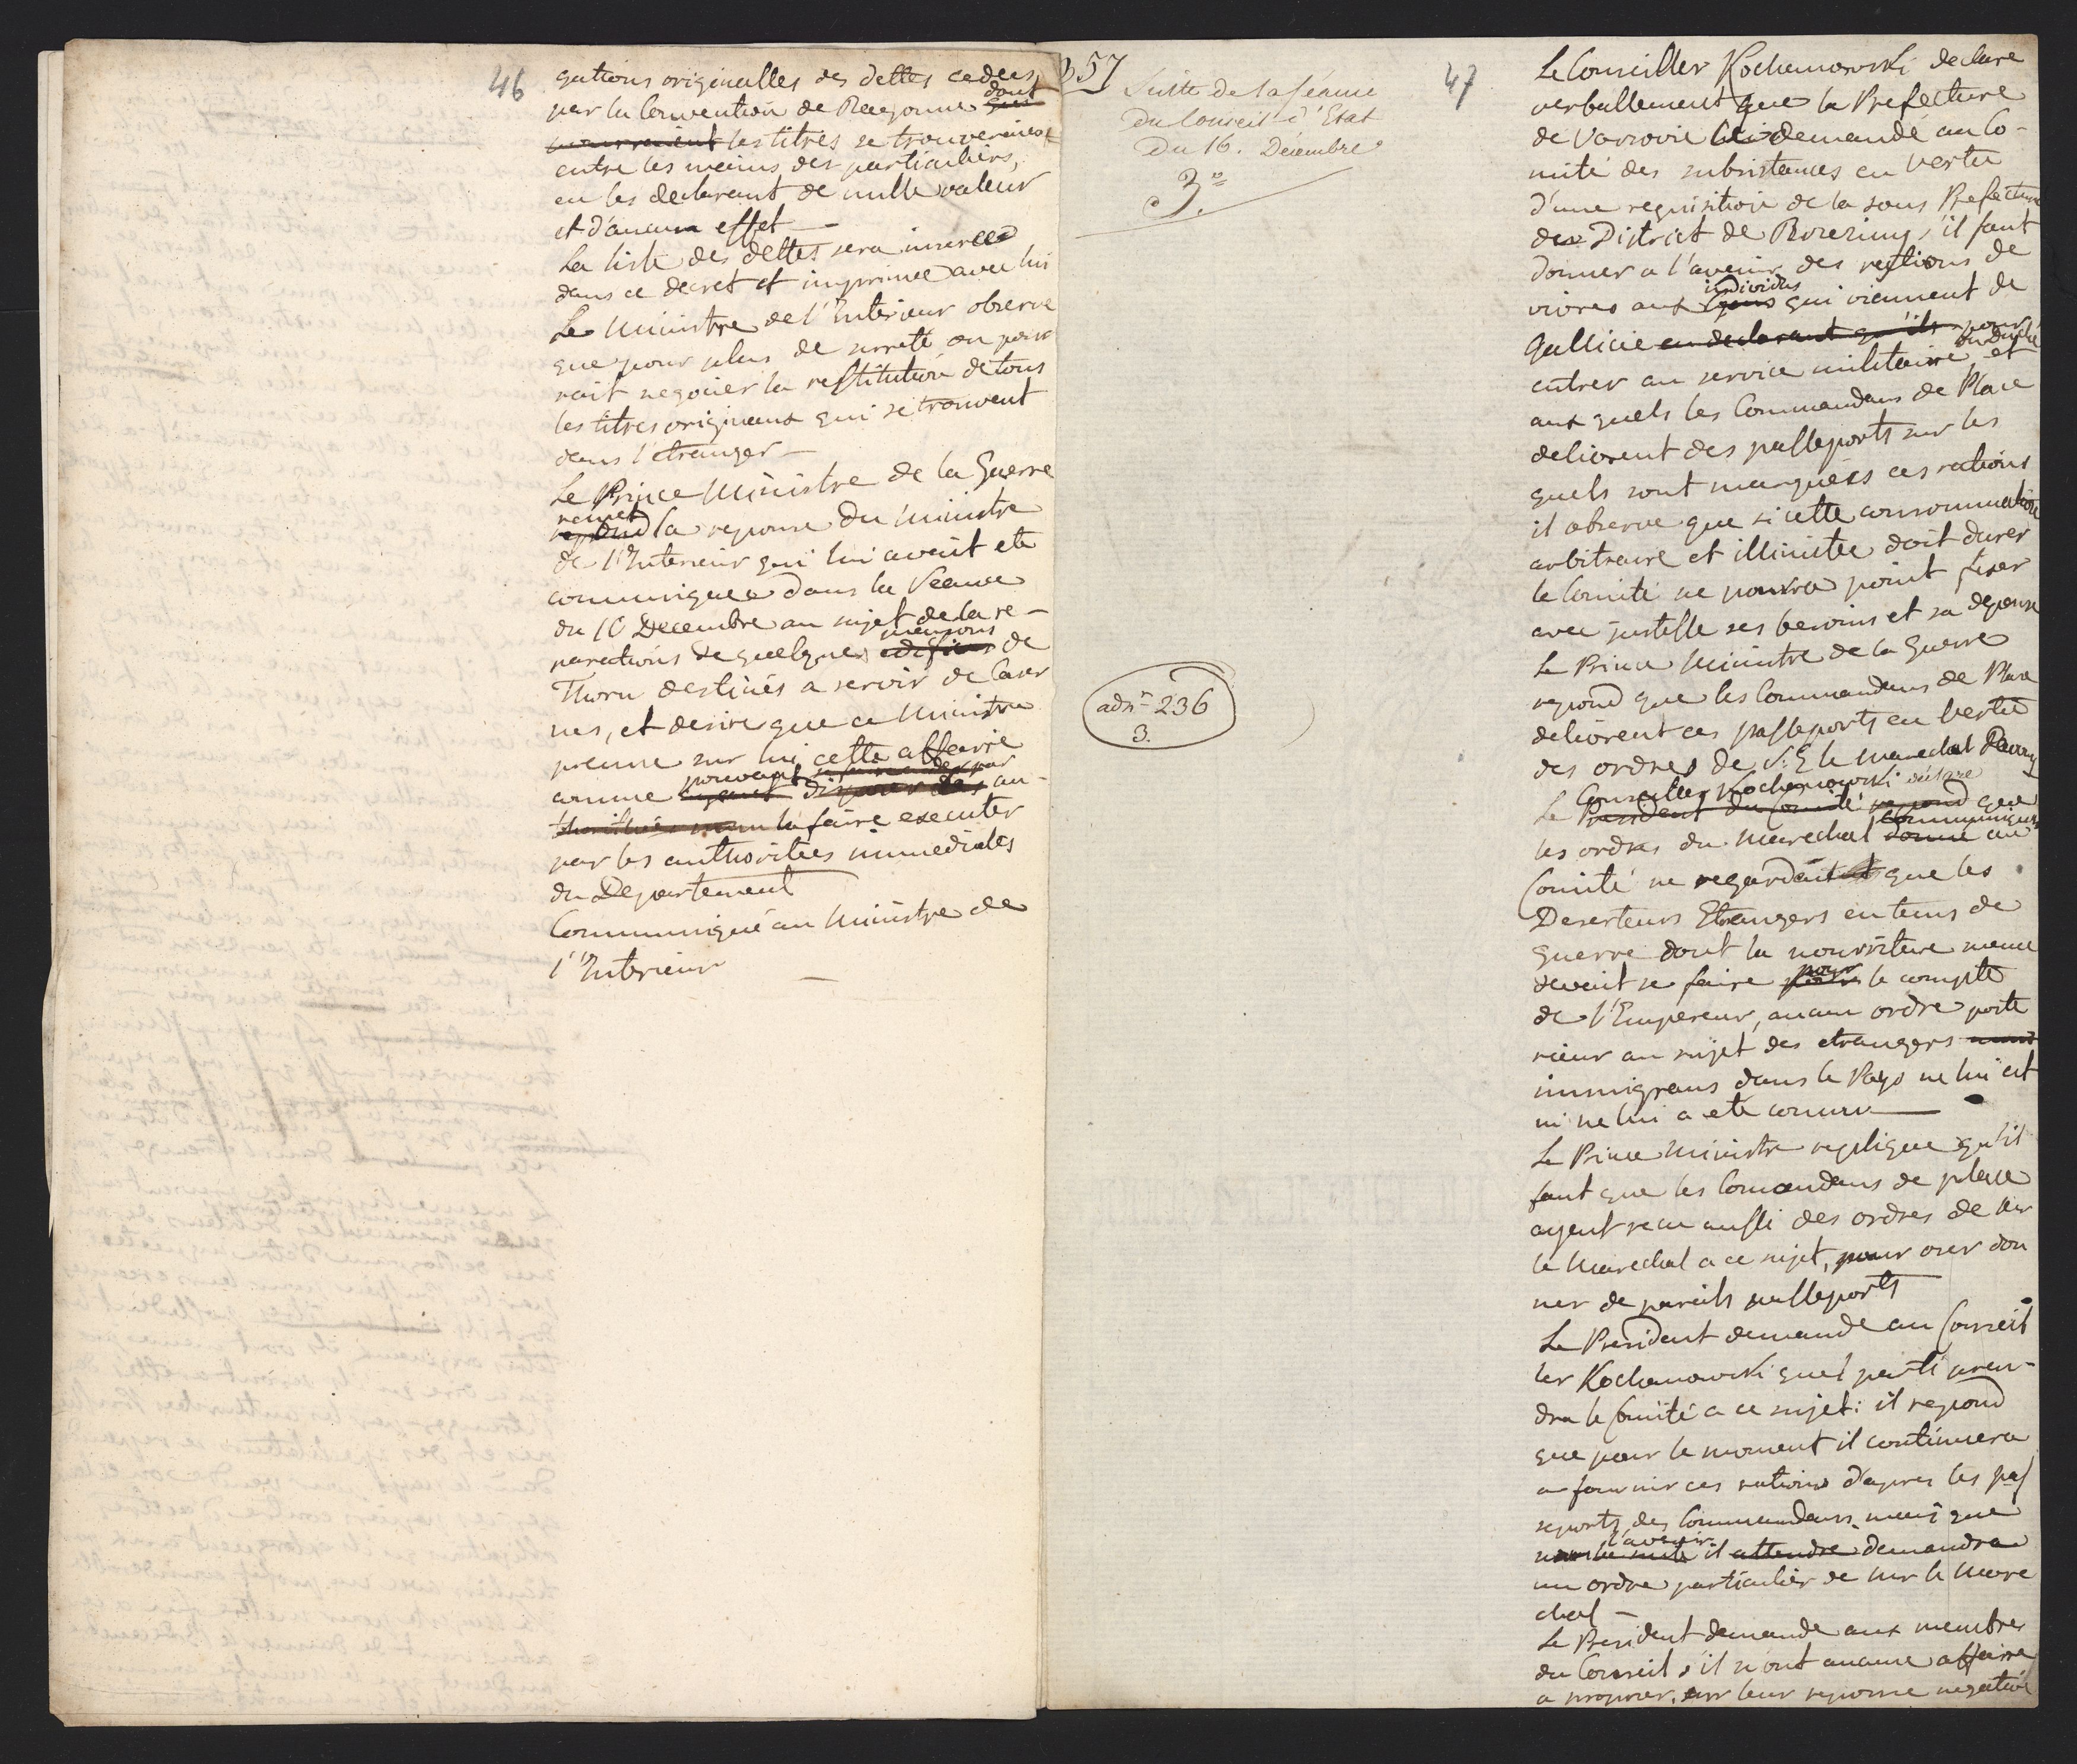 46
gations originalles des dettes cedees
par la Convention de Bayonne dont
les titres se trouveraient
entre les mains des particuliers,
en les declarant de nulle valeur
et d'aucun effet —
La liste des dettes sera inseree
dans ce decret et imprimée avec lui
Le Ministre de l'Interieur observe
que pour plus de sureté on pour
rait negocier la restitution de tous
les titres originaux qui se trouvent
dans l'etranger —
Le Prince Ministre de la Guerre
remet
repond la reponse du Ministre
de l'Interieur qui lui avait ete
communiquee dans la Seance
du 10 Decembre au sujet de la re-
parations de quelques maisons de
Thorn destinés a servir de Caser
nes, et desire que ce Ministre
prenne sur lui cette affaire
comme pouvant
la faire executer
par les authoritees immediates
du Departement
Communiqué au Ministre de
l'Interieur —
357
Suitte de la séance
du Conseil d'Etat
du 16. Décembre
3.
adn 236
3.
47
Le Conseiller Kochanowski declare
verballement que la Prefecture
de Varsovie a demandé au Co-
mité des subsistances en vertu
d'une requisition de la sous Prefecture
du District de , s'il faut
donner a l'avenir des rations de
individus
vivres aux gens qui viennent de
Gallicie en declarant qu'ils pour
du Duché
entrer au service militaire et
aux quels les Commandans de Place
delivrent des passeports sur les
quels sont marquées ces rations
il observe que si cette consommation
arbitraire et illimitée doit durer
le Comité ne pourra point fixer
avec justesse ses besoins et sa depense
Le Prince Ministre de la Guerre
repond que les Commandans de Place
delivrent ces passeports en vertu
des ordres de S: E le marechal Davoust
Conseiller Kochanowski déclare
Le President du Comité repond que
communiqués
les ordres du Marechal donné au
Comité ne regardaient que les
Deserteurs Etrangers en tems de
guerre dont la nourriture meme
devait se faire pour le compte
de l'Empereur, aucun ordre poste
rieur au sujet des etrangers
immigrans dans le Pays ne lui est
ni ne lui a ete connu —
Le Prince Ministre replique qu'il
faut que les Comandans de place
ayent recu aussi des ordres de Mr
le Marechal a ce sujet, pour oser don
ner de pareils passeports
Le President demande au Conseil
ler Kochanowski quel parti pren-
dra le Comité a ce sujet: il repond
que pour le moment il continuera
a fournir ces rations d'apres les pas
seports des Commandans. mais que
l'avenir
il attendre demandra
un ordre particulier de Mr le Mare
chal —
Le President demande aux membres
du Conseil s'il n'ont aucune affaire
a proposer. sur leur reponse negative